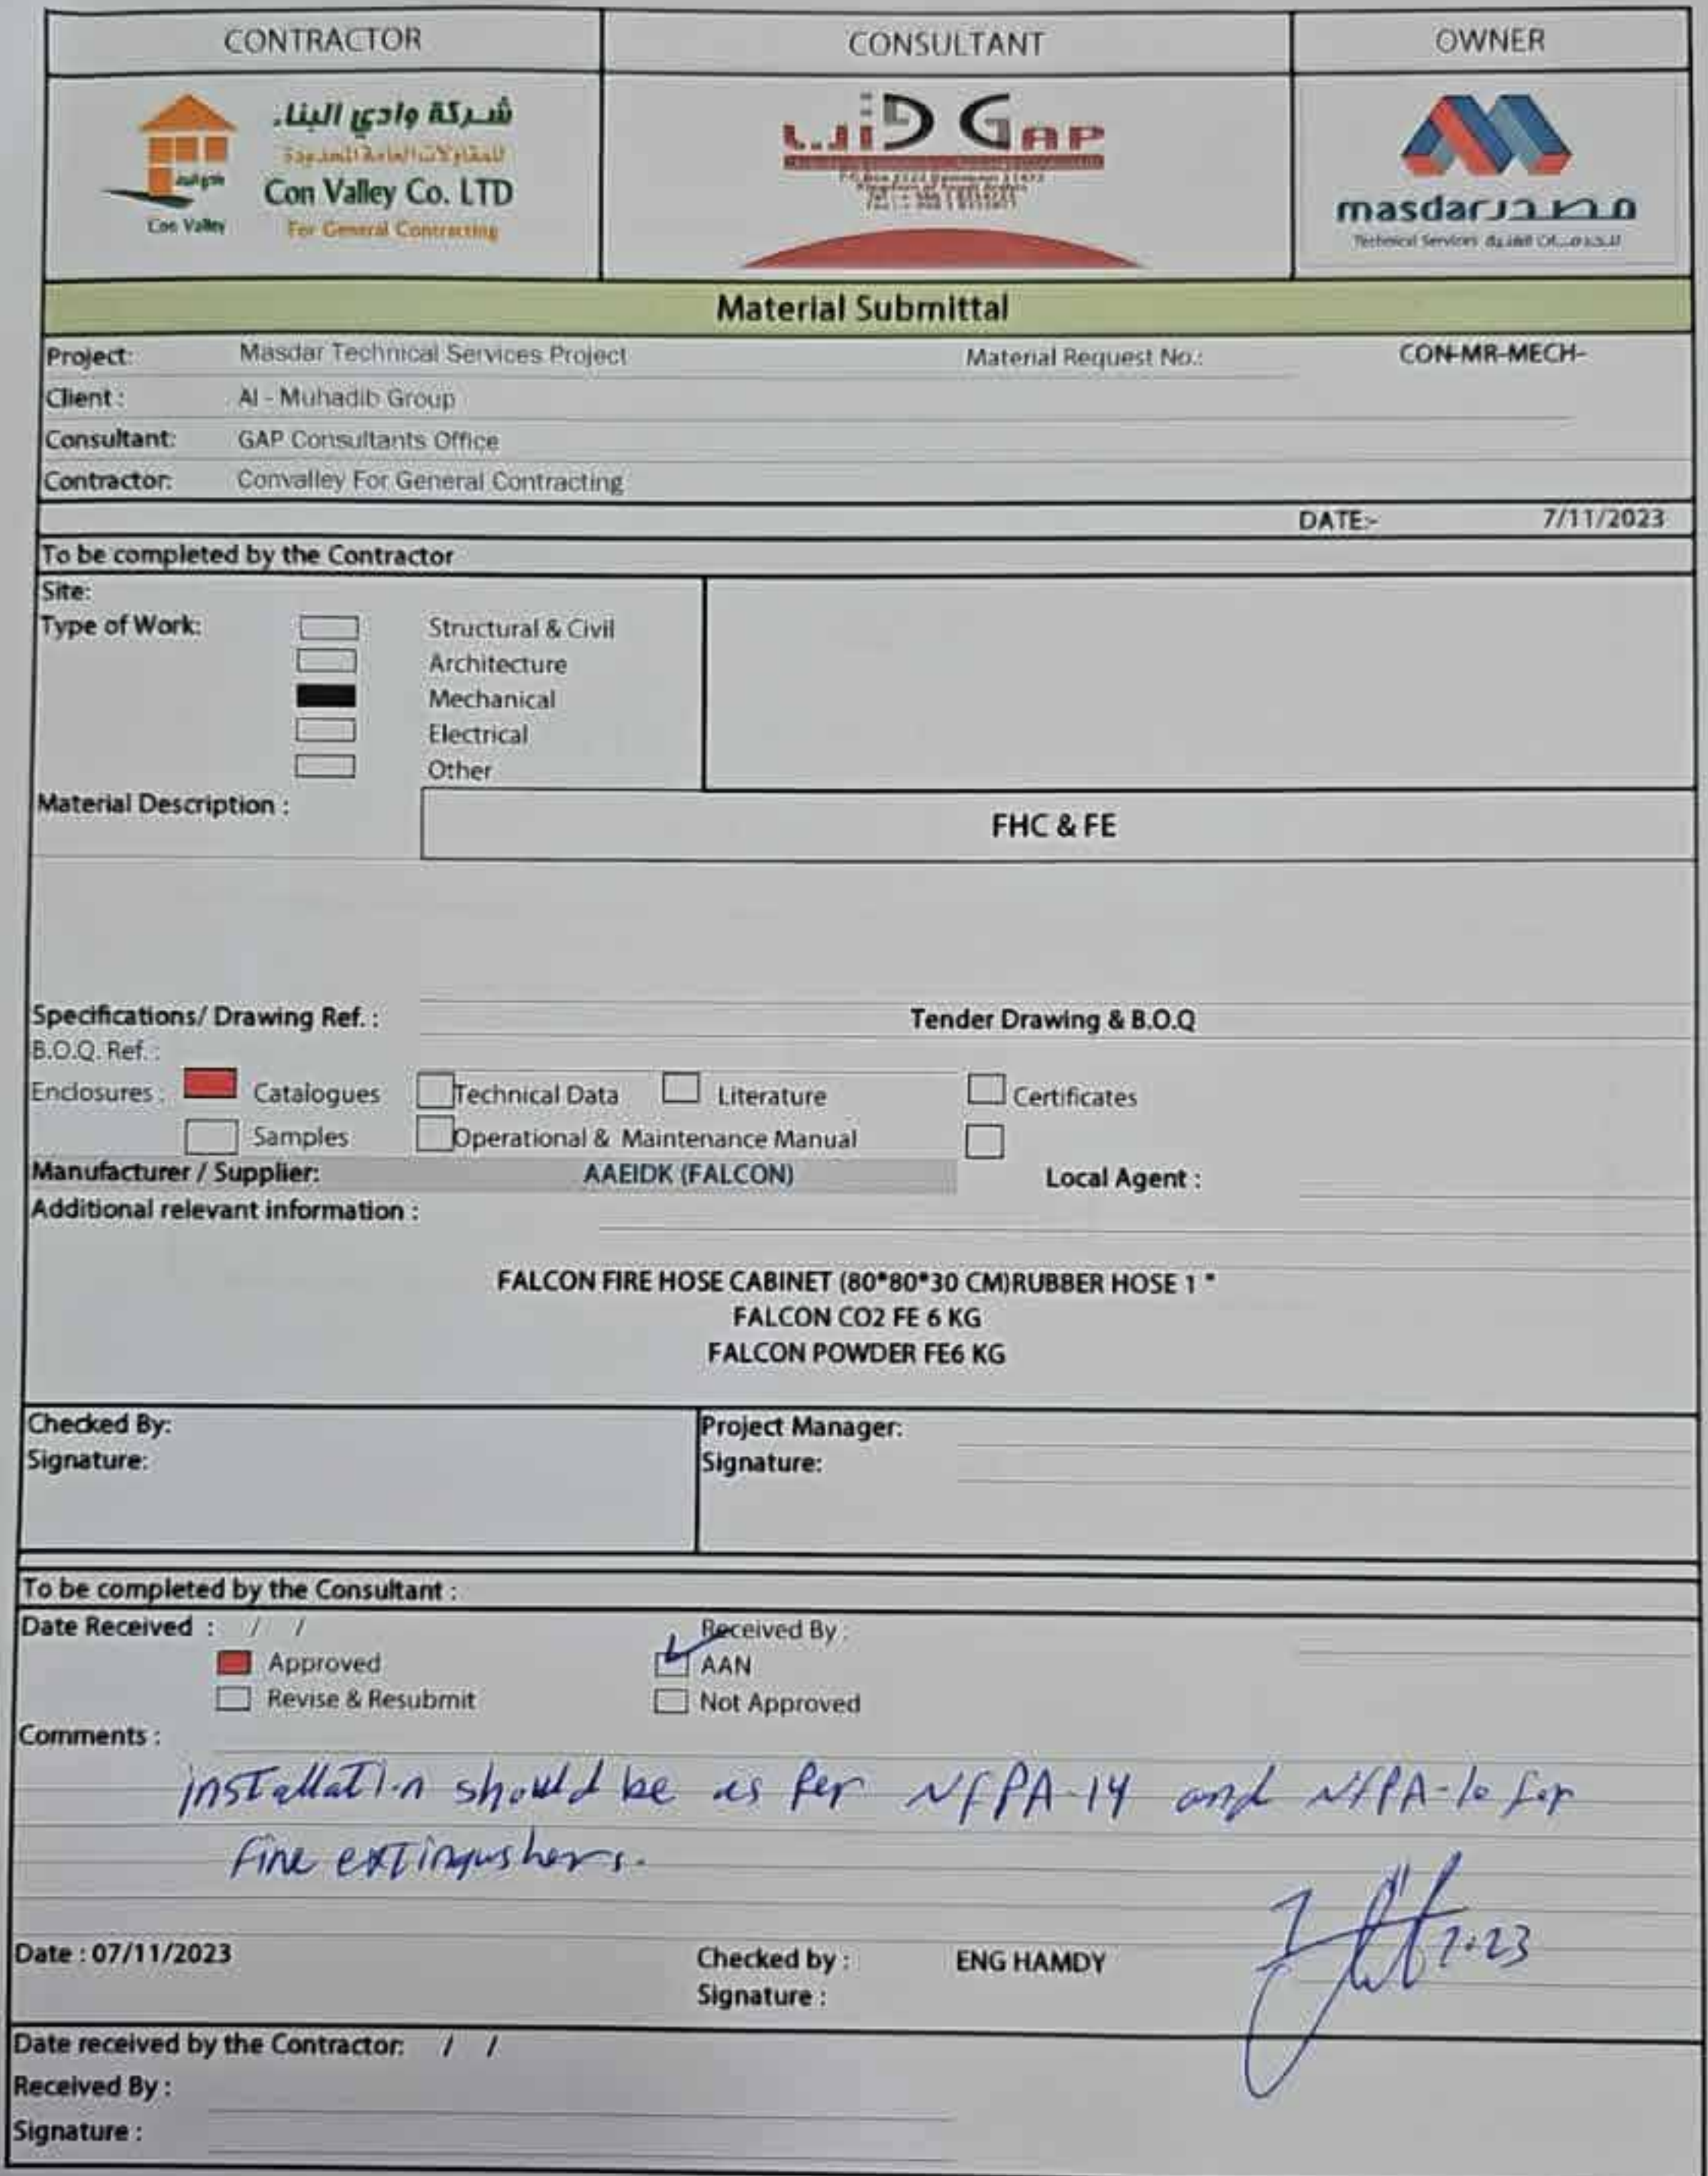 CONTRACTOR CONSULTANT OWNER
شركة وادي البناء
للمقاولات العامة المحدودة
Con Valley Co. LTD
Con Valley For General Contracting
GAP
masdar مصدر
Technical Services
Material Submittal
Project: Masdar Technical Services Project Material Request No.: CON-MR-MECH-
Client : Al - Muhadib Group
Consultant: GAP Consultants Office
Contractor: Convalley For General Contracting
DATE:- 7/11/2023
To be completed by the Contractor
Site:
Type of Work: Structural & Civil
Architecture
Mechanical
Electrical
Other
Material Description : FHC & FE
Specifications/ Drawing Ref. : Tender Drawing & B.O.Q
B.O.Q. Ref. :
Enclosures : Catalogues Technical Data Literature Certificates
Samples Operational & Maintenance Manual
Manufacturer / Supplier: AAEIDK (FALCON) Local Agent :
Additional relevant information :
FALCON FIRE HOSE CABINET (80*80*30 CM)RUBBER HOSE 1 "
FALCON CO2 FE 6 KG
FALCON POWDER FE6 KG
Checked By: Project Manager:
Signature: Signature:
To be completed by the Consultant :
Date Received : / / Received By :
Approved AAN
Revise & Resubmit Not Approved
Comments :
installation should be as per NFPA-14 and NFPA-10 for
fire extingushers.
Date : 07/11/2023 Checked by : ENG HAMDY
Signature :
Date received by the Contractor: / /
Received By :
Signature :